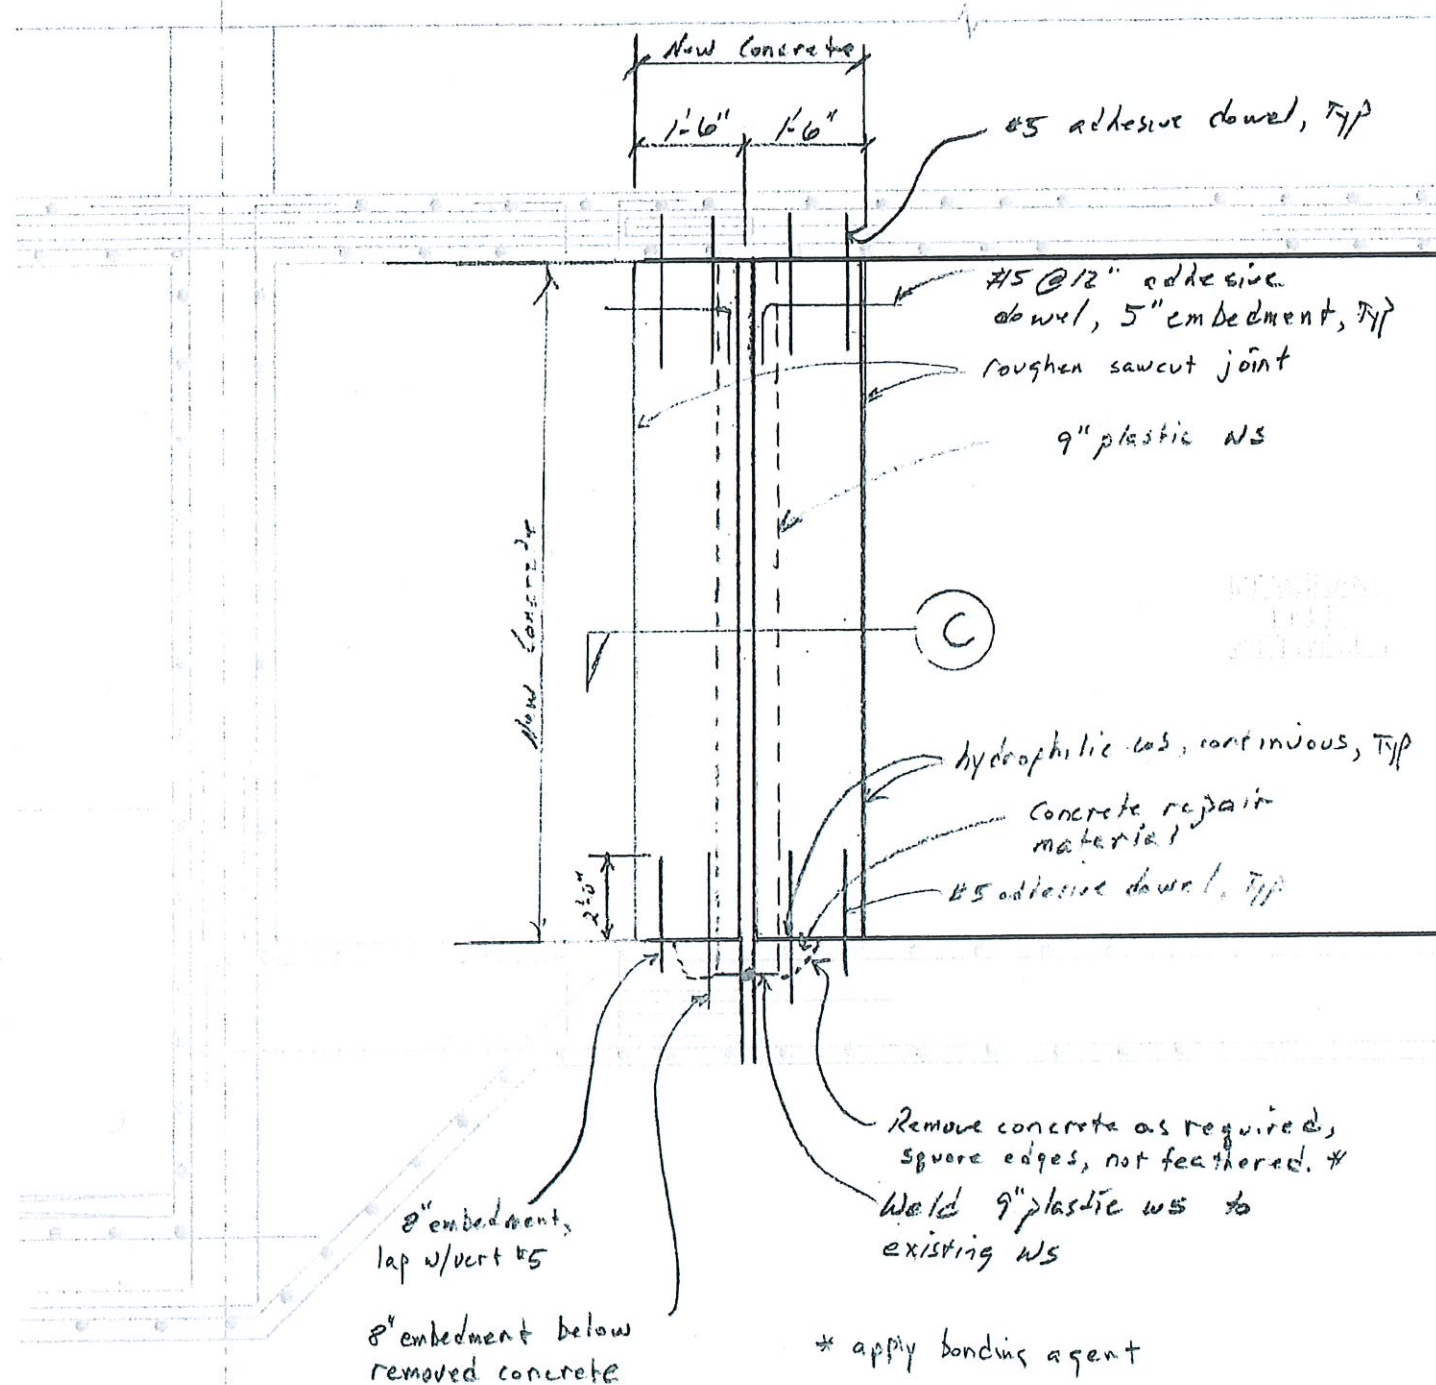 New Concrete
1'-6" 1'-6"
#5 adhesive dowel, Typ
#5 @ 12" adhesive
dowel, 5" embedment, Typ
roughen sawcut joint
9" plastic WS
New Concrete
C
hydrophilic ws, continuous, Typ
Concrete repair
material
2'-0"
#5 adhesive dowel, Typ
Remove concrete as required,
square edges, not feathered. *
Weld 9" plastic ws to
existing WS
8" embedment,
lap w/vert #5
8" embedment below
removed concrete
* apply bonding agent